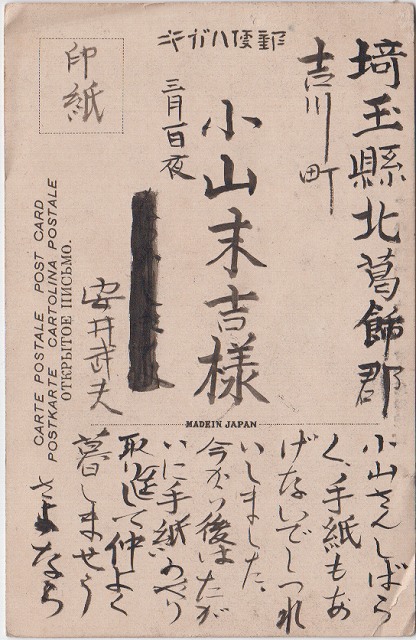 郵便ハガキ
印紙
埼玉縣北葛飾郡
吉川町
小山末吉様
三月一日夜
安井武夫
CARTE POSTALE POST CARD
POSTKARTE CARTOLINA POSTALE
ОТКРЫТОЕ ПИСЬМО.
MADE IN JAPAN
小山さんしばら
く、手紙もあ
げないでしつれ
いしました、
今から後はたが
いに手紙のやり
取りして仲よく
暮しませう
さよなら